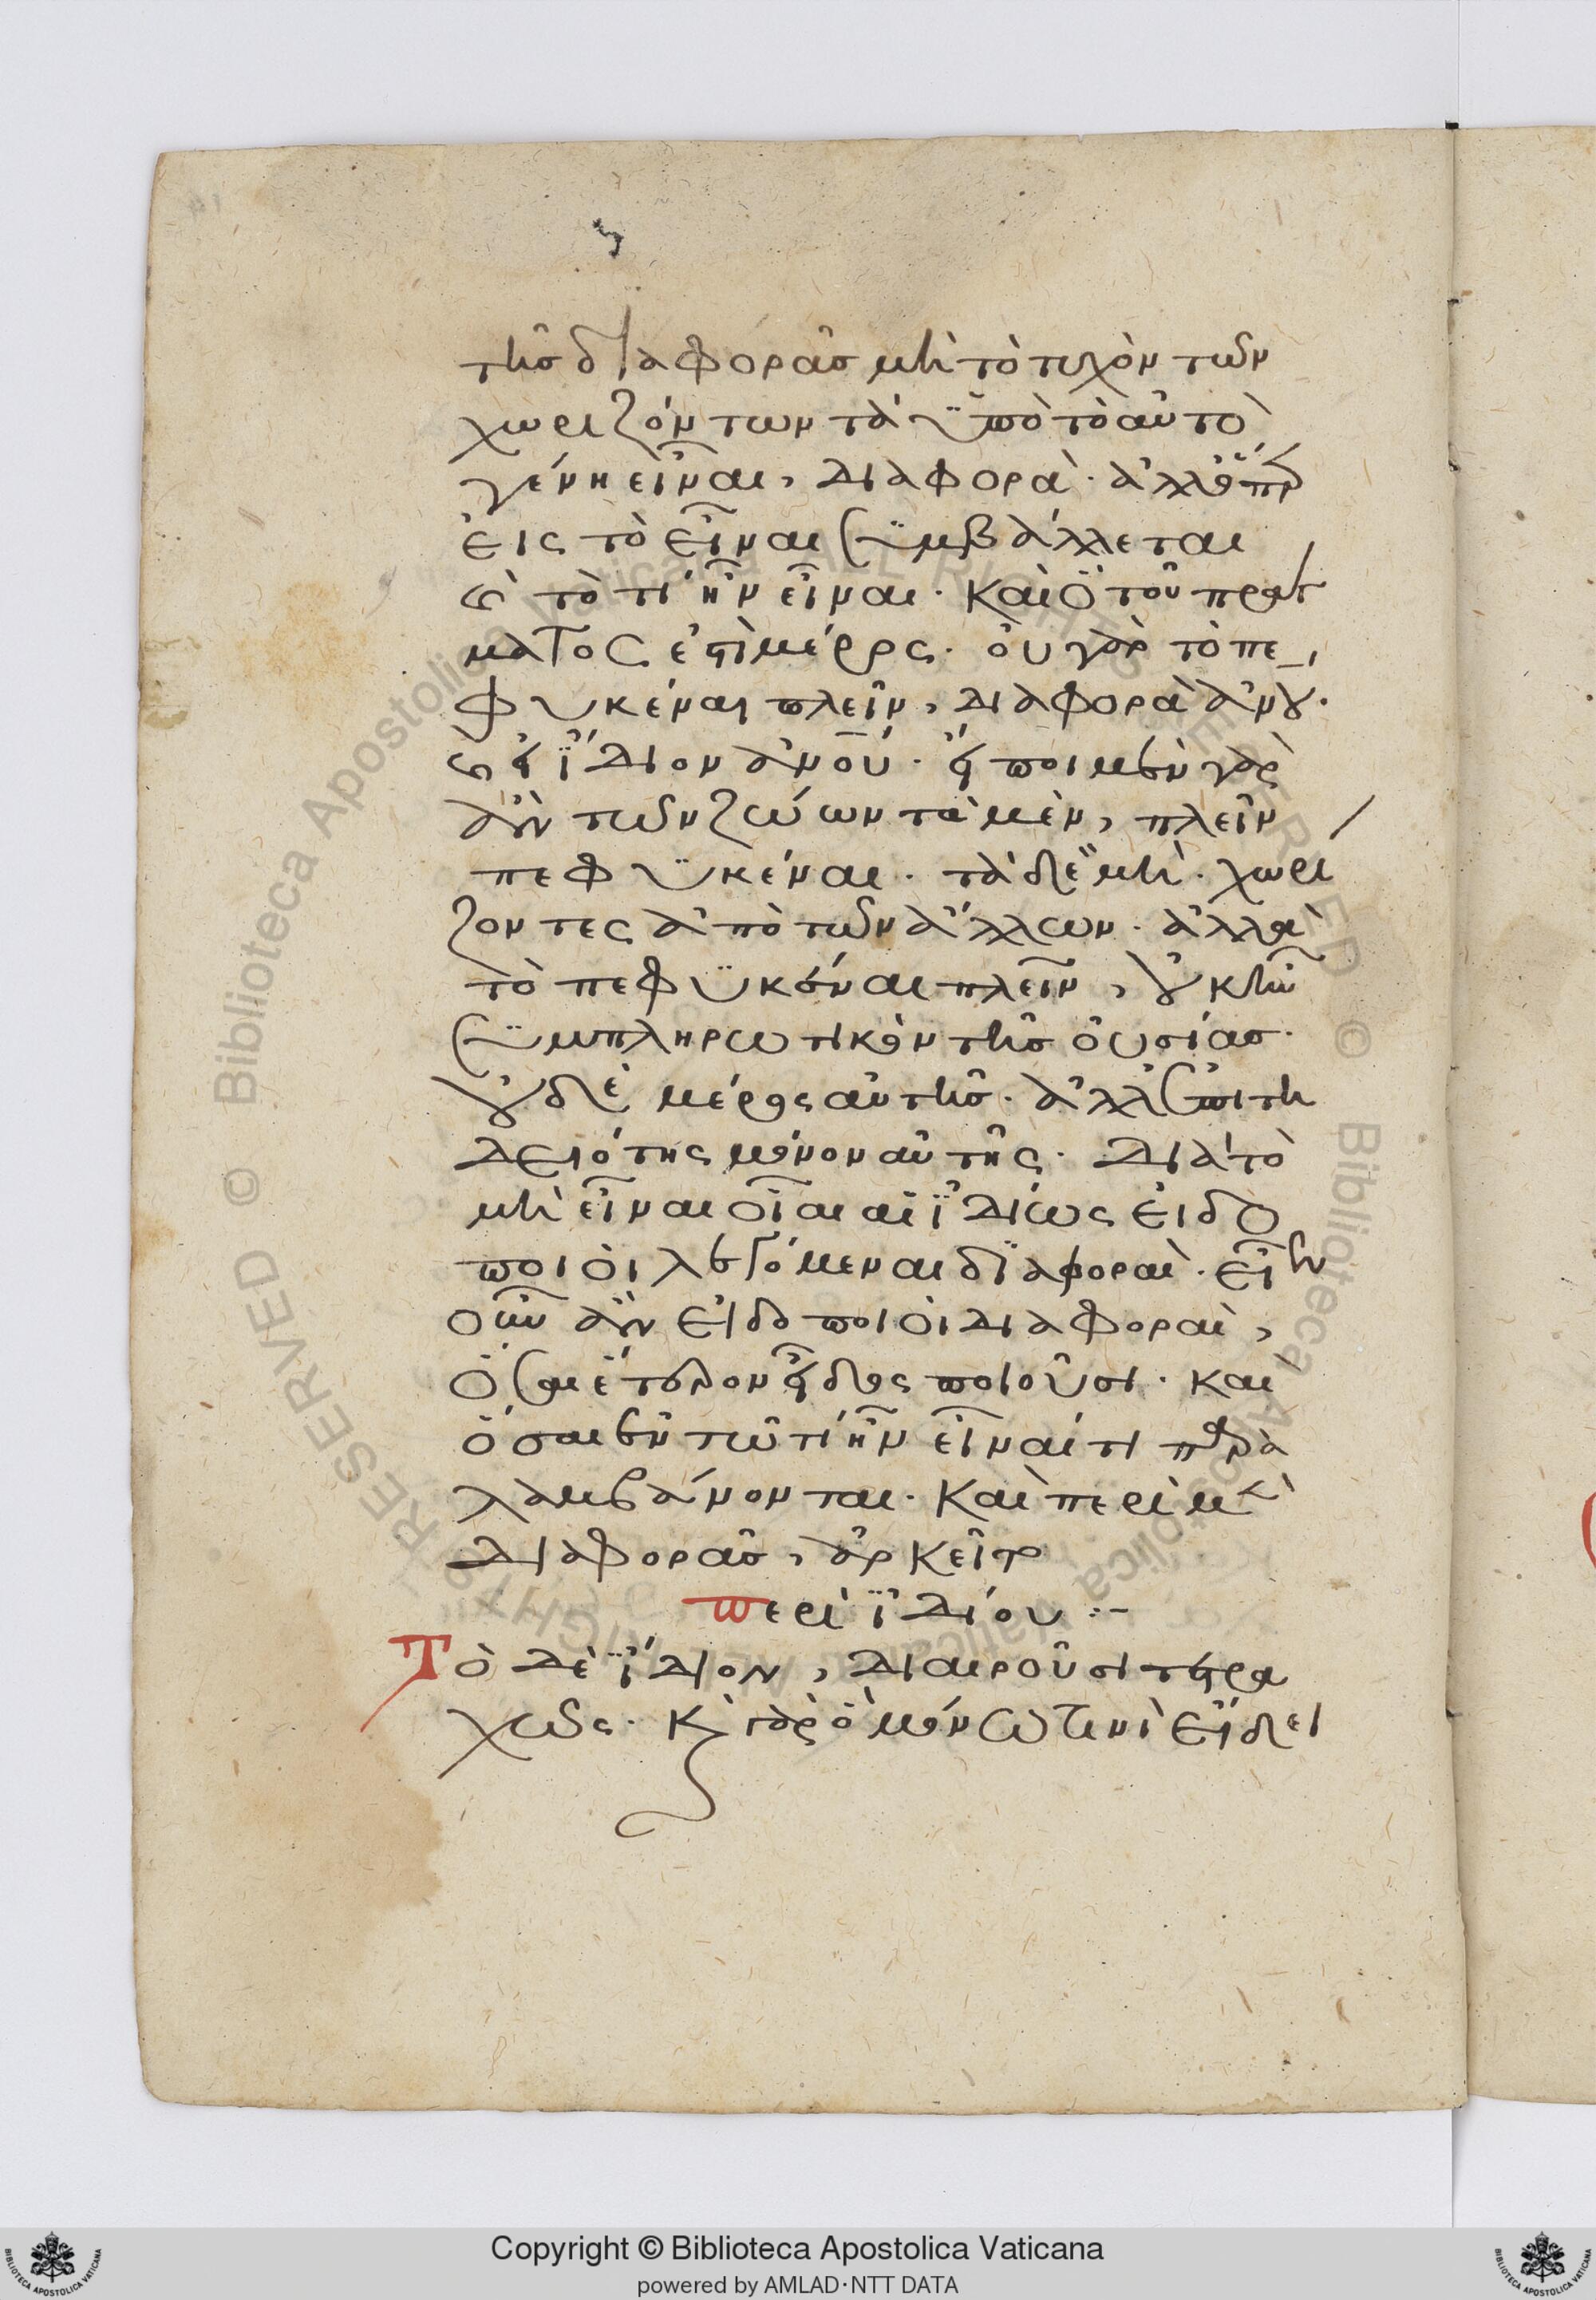 τῆς διαφορᾶς μὴ τὸ τυχὸν τῶν
χωριζόντων τὰ ὑπὸ τὸ αὐτὸ
γένη εἶναι, διαφορὰ· ἀλλ' ὅπερ
εἰς τὸ εἶναι συμβάλλεται
καὶ τὸ τί ἦν εἶναι· καὶ ὃ τοῦ πράγ
ματος ἐστὶ μέρος· οὐ γὰρ τὸ πε
φυκέναι πλεῖν, διαφορὰ ἀνου·
εἰ καὶ ἴδιον ἀνου· εἴποιμεν γὰρ
ἂν τῶν ζώων τὰ μὲν, πλεῖν
πεφυκέναι· τὰ δὲ μὴ· χωρί
ζοντες ἀπὸ τῶν ἄλλων· ἀλλὰ
τὸ πεφυκέναι πλεῖν, οὐκ ἦν
συμπληρωτικὸν τῆς οὐσίας·
οὐδὲ μέρος αὐτῆς· ἀλλ' ἐπιτη
δειότης μόνον αὐτῆς· διὰ τὸ
μὴ εἶναι οἷαι αἱ ἰδίως εἰδο
ποιοὶ λεγόμεναι διαφοραὶ· εἶεν
οὖν ἂν εἰδοποιοὶ διαφοραὶ,
ὅσαι ἕτερον εἶδος ποιοῦσι· καὶ
ὅσαι ἐν τῷ τί ἦν εἶναί τι παρα
λαμβάνονται· καὶ περὶ μὲν
διαφορᾶς, ἀρκεῖ το
περὶ ἰδίου :-
Τὸ δὲ ἴδιον, διαιροῦσι τετρα
χῶς· καὶ γὰρ ὃ μόνω τινὶ εἴδει
Copyright © Biblioteca Apostolica Vaticana
powered by AMLAD·NTT DATA